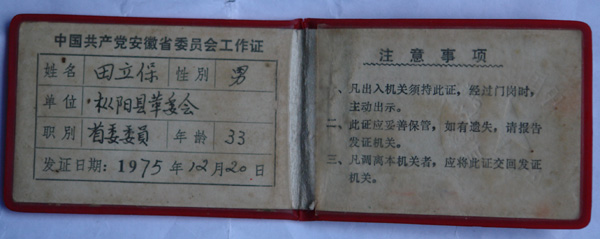 中国共产党安徽省委员会工作证
姓名 田立保 性别 男
单位 枞阳县革委会
职别 省委委员 年龄 33
发证日期：1975年12月20日
注意事项
一、凡出入机关须持此证，经过门岗时，
主动出示。
二、此证应妥善保管，如有遗失，请报告
发证机关。
三、凡调离本机关者，应将此证交回发证
机关。